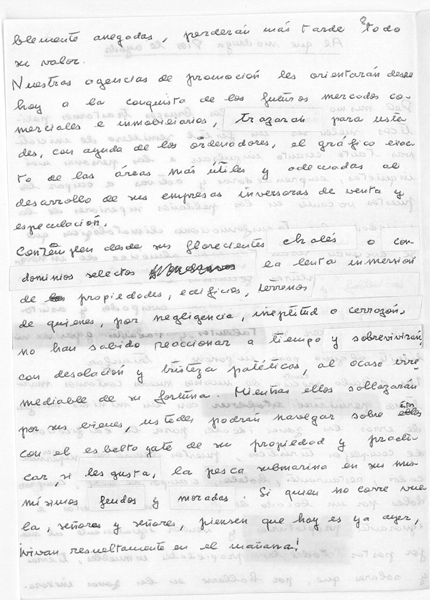 blemente anegadas, perderán más tarde todo
su valor.
Nuestras agencias de promoción les orientarán desde
hoy a la conquista de los futuros mercados co-
merciales e inmobiliarios, trazarán para uste-
des, con ayuda de los ordenadores, el gráfico exac-
to de las áreas más útiles y adecuadas al
desarrollo de sus empresas inversoras de venta y
especulación.
Contemplen desde sus florecientes chalés o con-
dominios selectos la lenta inmersión
de propiedades, edificios, terrenos
de quienes, por negligencia, ineptitud o cerrazón,
no han sabido reaccionar a tiempo y sobrevivirán,
con desolación y tristeza patéticas, al ocaso irre-
mediable de su fortuna. Mientras ellos sollozarán
por sus bienes, ustedes podrán navegar sobre ellos
con el esbelto yate de su propiedad y practi-
car, si les gusta, la pesca submarina en sus mis-
mísimos feudos y moradas. Si quien no corre vue-
la, señoras y señores, piensen que hoy es ya ayer,
¡vivan resueltamente en el mañana!